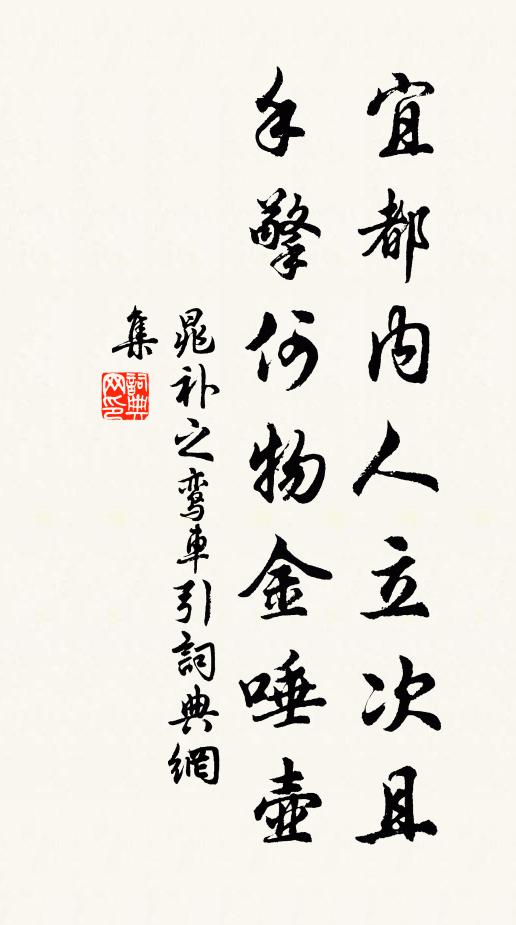 宜都内人立次且
手擎何物金唾壺
晁补之鸾車引詞典網
集
詞典
网印